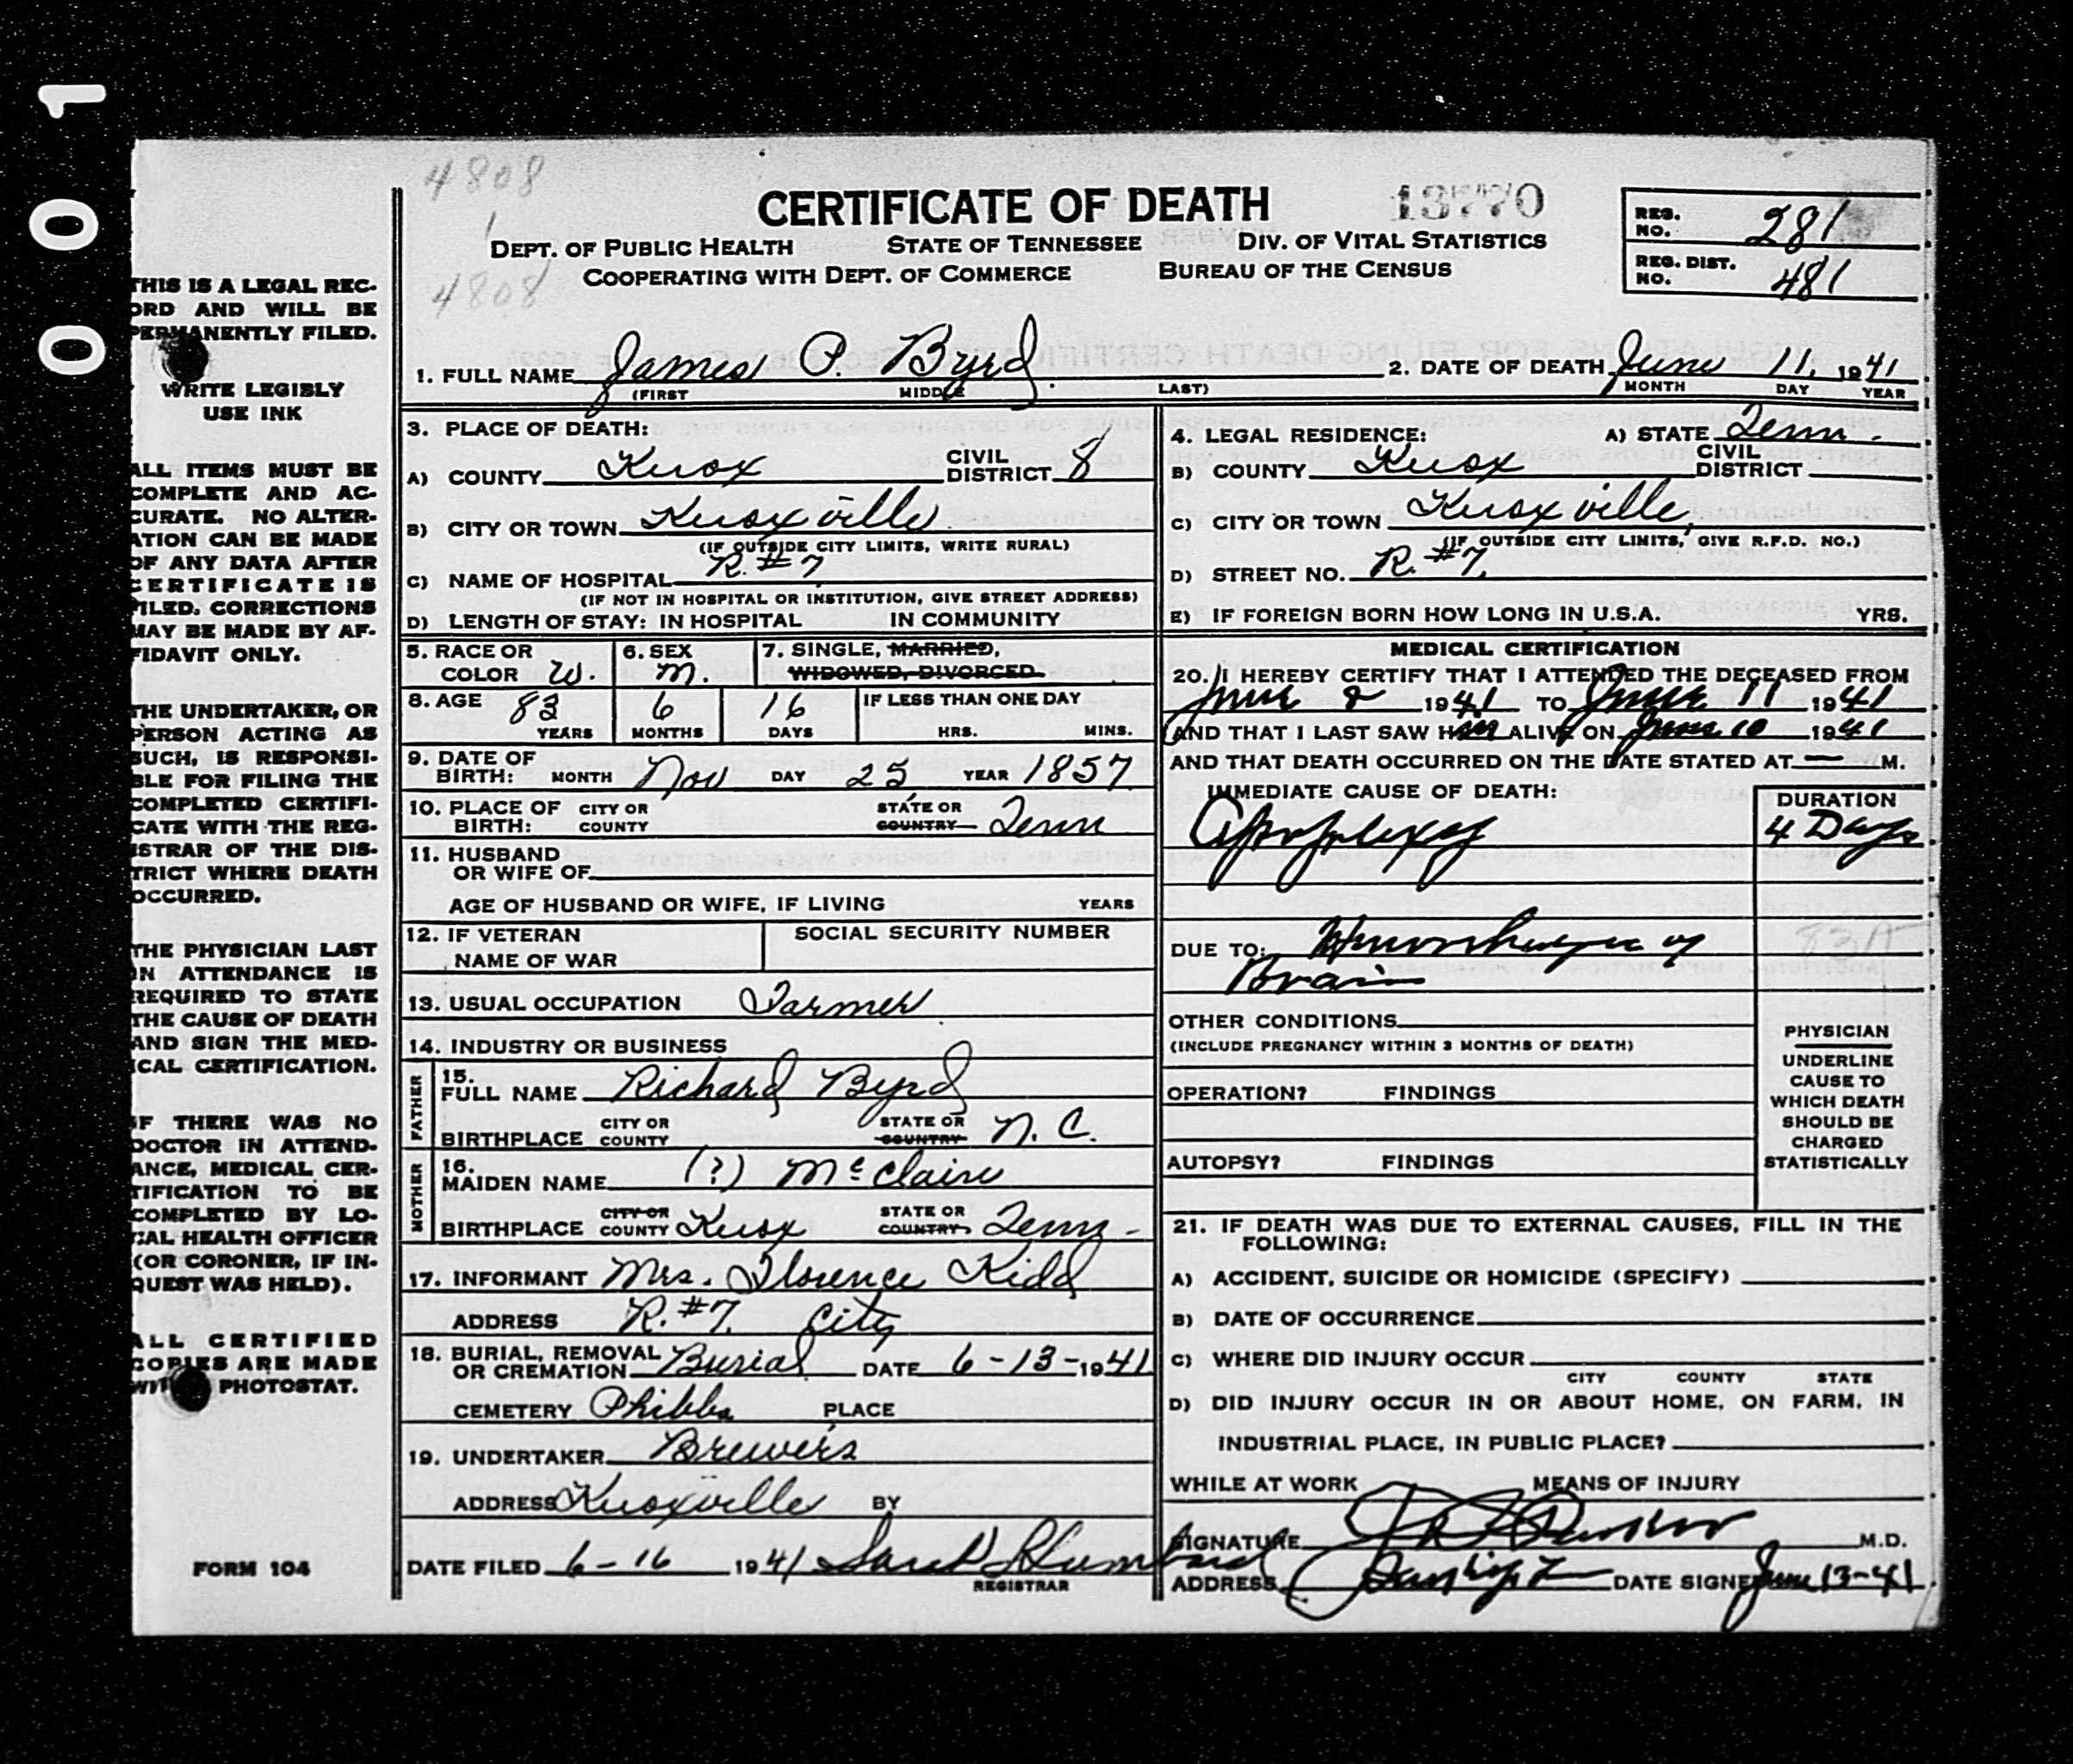 0001
4808
1
4808
CERTIFICATE OF DEATH 13770
DEPT. OF PUBLIC HEALTH STATE OF TENNESSEE DIV. OF VITAL STATISTICS
COOPERATING WITH DEPT. OF COMMERCE BUREAU OF THE CENSUS
REG. NO. 281
REG. DIST. NO. 481
THIS IS A LEGAL REC-
ORD AND WILL BE
PERMANENTLY FILED.
WRITE LEGIBLY
USE INK
ALL ITEMS MUST BE
COMPLETE AND AC-
CURATE. NO ALTER-
ATION CAN BE MADE
OF ANY DATA AFTER
CERTIFICATE IS
FILED. CORRECTIONS
MAY BE MADE BY AF-
FIDAVIT ONLY.
THE UNDERTAKER, OR
PERSON ACTING AS
SUCH, IS RESPONSI-
BLE FOR FILING THE
COMPLETED CERTIFI-
CATE WITH THE REG-
ISTRAR OF THE DIS-
TRICT WHERE DEATH
OCCURRED.
THE PHYSICIAN LAST
IN ATTENDANCE IS
REQUIRED TO STATE
THE CAUSE OF DEATH
AND SIGN THE MED-
ICAL CERTIFICATION.
IF THERE WAS NO
DOCTOR IN ATTEND-
ANCE, MEDICAL CER-
TIFICATION TO BE
COMPLETED BY LO-
CAL HEALTH OFFICER
(OR CORONER, IF IN-
QUEST WAS HELD).
ALL CERTIFIED
COPIES ARE MADE
WITH PHOTOSTAT.
FORM 104
1. FULL NAME James P. Byrd 2. DATE OF DEATH June 11, 1941
(FIRST MIDDLE LAST) MONTH DAY YEAR
3. PLACE OF DEATH:
A) COUNTY Knox CIVIL DISTRICT 8
B) CITY OR TOWN Knoxville
(IF OUTSIDE CITY LIMITS, WRITE RURAL)
C) NAME OF HOSPITAL R. #7
(IF NOT IN HOSPITAL OR INSTITUTION, GIVE STREET ADDRESS)
D) LENGTH OF STAY: IN HOSPITAL IN COMMUNITY
4. LEGAL RESIDENCE: A) STATE Tenn.
B) COUNTY Knox CIVIL DISTRICT
C) CITY OR TOWN Knoxville,
(IF OUTSIDE CITY LIMITS, GIVE R.F.D. NO.)
D) STREET NO. R. #7.
E) IF FOREIGN BORN HOW LONG IN U.S.A. YRS.
5. RACE OR COLOR W. 6. SEX M. 7. SINGLE, MARRIED,
WIDOWED, DIVORCED
8. AGE 83 YEARS 6 MONTHS 16 DAYS IF LESS THAN ONE DAY
HRS. MINS.
9. DATE OF BIRTH: MONTH Nov DAY 25, YEAR 1857
10. PLACE OF BIRTH: CITY OR COUNTY STATE OR COUNTRY Tenn
11. HUSBAND
OR WIFE OF
AGE OF HUSBAND OR WIFE, IF LIVING YEARS
12. IF VETERAN SOCIAL SECURITY NUMBER
NAME OF WAR
13. USUAL OCCUPATION Farmer
14. INDUSTRY OR BUSINESS
FATHER
15. FULL NAME Richard Byrd
BIRTHPLACE CITY OR COUNTY STATE OR COUNTRY N. C.
MOTHER
16. MAIDEN NAME (?) McClaire
BIRTHPLACE CITY OR COUNTY Knox STATE OR COUNTRY Tenn.
17. INFORMANT Mrs. Florence Kidd
ADDRESS R. #7. City
18. BURIAL, REMOVAL
OR CREMATION Burial DATE 6-13-1941
CEMETERY Phibbs PLACE
19. UNDERTAKER Brewers
ADDRESS Knoxville BY
DATE FILED 6-16 1941
REGISTRAR
MEDICAL CERTIFICATION
20. I HEREBY CERTIFY THAT I ATTENDED THE DECEASED FROM
June 8 1941 TO June 11 1941
AND THAT I LAST SAW HIM ALIVE ON June 10 1941
AND THAT DEATH OCCURRED ON THE DATE STATED AT — M.
IMMEDIATE CAUSE OF DEATH: DURATION
Apoplexy 4 Days
DUE TO: Hemorrhage of 83A
Brain
OTHER CONDITIONS
(INCLUDE PREGNANCY WITHIN 3 MONTHS OF DEATH)
OPERATION? FINDINGS
AUTOPSY? FINDINGS
PHYSICIAN
UNDERLINE
CAUSE TO
WHICH DEATH
SHOULD BE
CHARGED
STATISTICALLY
21. IF DEATH WAS DUE TO EXTERNAL CAUSES, FILL IN THE
FOLLOWING:
A) ACCIDENT, SUICIDE OR HOMICIDE (SPECIFY)
B) DATE OF OCCURRENCE
C) WHERE DID INJURY OCCUR
CITY COUNTY STATE
D) DID INJURY OCCUR IN OR ABOUT HOME, ON FARM, IN
INDUSTRIAL PLACE, IN PUBLIC PLACE?
WHILE AT WORK MEANS OF INJURY
SIGNATURE M.D.
ADDRESS DATE SIGNED June 13-41